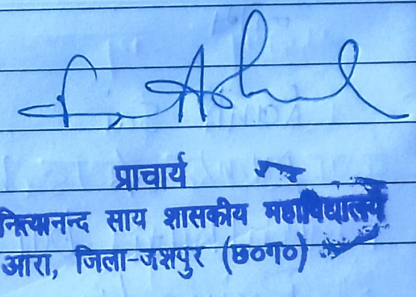 प्राचार्य
नित्यानन्द साय शासकीय महाविद्यालय
आरा, जिला-जशपुर (छ०ग०)